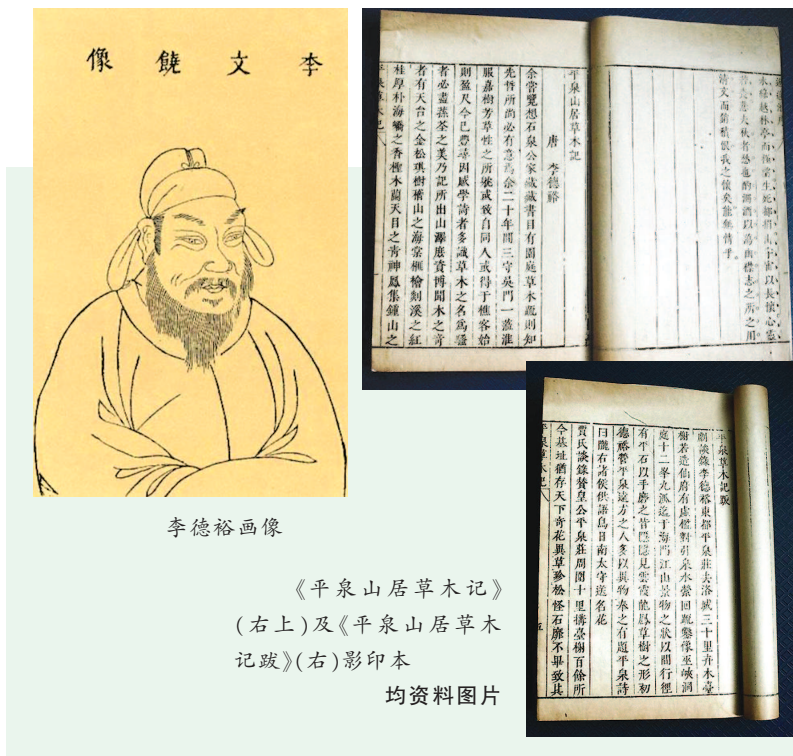 李文饒像
李德裕画像
《平泉山居草木记》
(右上)及《平泉山居草木
记跋》(右)影印本
均资料图片
清文而銷積恨我之懷矣能無情乎
平泉山居草木記
唐 李德裕
余嘗覽想石泉公家藏藏書目有園庭草木疏則知
先哲所尚必有意焉余二十年間三守吳門一蒞淮
服嘉樹芳草性之所耽或致自同人或得于樵客始
則盈尺今已豐尋因感學詩者多識草木之名為騷
者必盡蓀荃之美乃記所出山澤庶資博聞木之奇
者有天台之金松琪樹稽山之海棠榧檜剡溪之紅
桂厚朴海嶠之香檉木蘭天目之青神鳳集鍾山之
平泉草木記
平泉草木記跋
劇談錄李德裕東都平泉莊去洛城三十里卉木臺
榭若造仙府有虛檻對引泉水縈回疏鑿像巫峽洞
庭十二峯九派迄于海門江山景物之狀以間行徑
有平石以手磨之皆隱隱見雲霞龍鳳草樹之形初
德裕營平泉遠方之人多以異物奉之有題平泉詩
曰隴右諸侯供語鳥日南太守送名花
賈氏談錄贊皇公平泉莊周圍十里搆臺榭百餘所
今基址猶存天下奇花異草珍松怪石靡不畢致其
平泉草木記
五